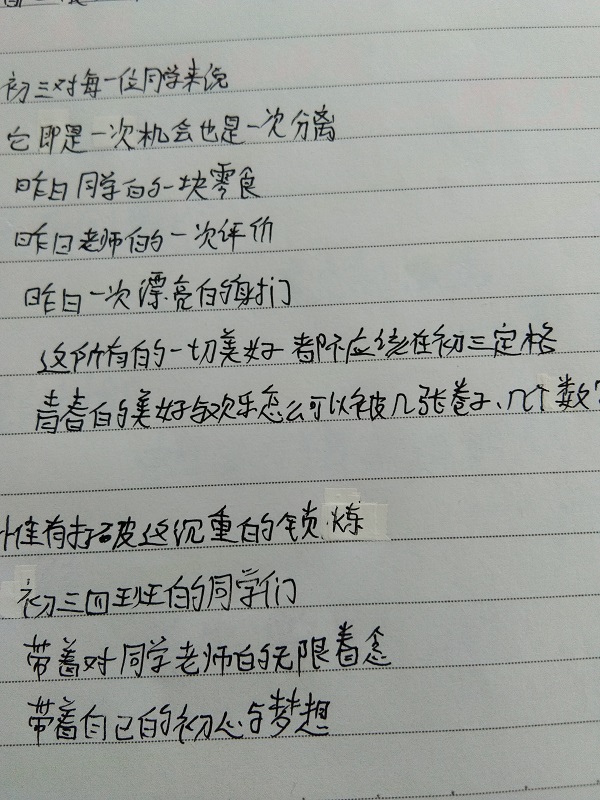 初三对每一位同学来说
它即是一次机会也是一次分离
昨日同学的一块零食
昨日老师的一次评价
昨日一次漂亮的射门
这所有的一切美好都不应该在初三定格
青春的美好与欢乐怎么可以被几张卷子、几个数
惟有打破这沉重的锁炼
初三四班的同学们
带着对同学老师的无限眷念
带着自己的初心与梦想